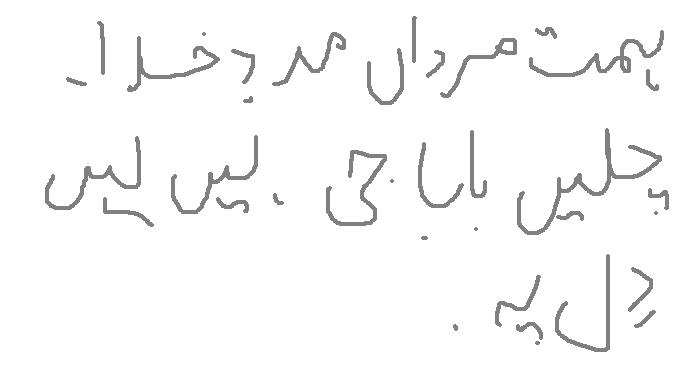 ہمت مرداں مدد خدا۔
چلیں بابا جی . لیں لیں
دل پہ .